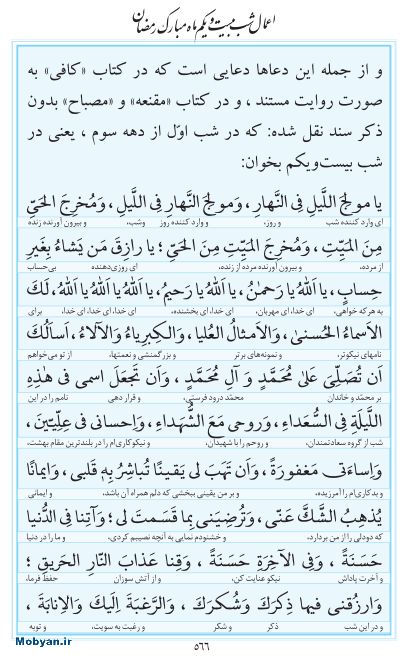 اعمال شب بیست و یکم ماه مبارک رمضان
و از جمله این دعاها دعایی است که در کتاب «کافی» به
صورت روایت مستند ، و در کتاب «مقنعه» و «مصباح» بدون
ذکر سند نقل شده: که در شب اوّل از دهه سوم ، یعنی در
شب بیست‌ویکم بخوان:
یا مولِجَ اللَّیلِ فِی النَّهارِ، وَمولِجَ النَّهارِ فِی اللَّیلِ ، وَمُخرِجَ الحَیِّ
ای وارد کننده شب و روز، و وارد کننده روز وشب، و بیرون آورنده زنده
مِنَ المَیِّتِ ، وَمُخرِجَ المَیِّتِ مِنَ الحَیِّ ؛ یا رازِقَ مَن یَشاءُ بِغَیرِ
از مرده، و بیرون آورنده مرده از زنده، ای روزی‌دهنده بی‌حساب
حِسابٍ ، یا اَللهُ یا رَحمٰنُ، یا اَللهُ یا رَحیمُ، یا اَللهُ یا اَللهُ یا اَللهُ، لَکَ
به هر که خواهی، ای خدا، ای مهربان، ای خدا، ای بخشنده، ای خدا، ای خدا، ای خدا، برای
الاَسماءُ الحُسنیٰ، وَالاَمثالُ العُلیا، وَالکِبرِیاءُ وَالآلاءُ، اَسأَلُکَ
نامهای نیکوتر، و نمونه‌های برتر و بزرگمنشی و نعمتها، از تو می‌خواهم
اَن تُصَلِّیَ عَلیٰ مُحَمَّدٍ وَ آلِ مُحَمَّدٍ ، وَاَن تَجعَلَ اسمی فی هٰذِهِ
بر محمّد و خاندان محمّد درود فرستی، و قرار دهی نامم را در این
اللَّیلَةِ فِی السُّعَداءِ، وَروحی مَعَ الشُّهَداءِ، وَاِحسانی فی عِلِّیّینَ،
شب از گروه سعادتمندان، و روحم را با شهیدان، و نیکوکاری‌ام را در بلندترین مقام بهشت،
وَاِساءَتی مَغفورَةً ، وَاَن تَهَبَ لی یَقینًا تُباشِرُ بِهِ قَلبی، وَایمانًا
و بدکاری‌ام را آمرزیده، و بر من یقینی ببخشی که دلم همراه آن باشد، و ایمانی
یُذهِبُ الشَّکَّ عَنّی، وَتُرضِیَنی بِما قَسَمتَ لی؛ وَآتِنا فِی الدُّنیا
که دودلی را از من بردارد، و خشنودم نمایی به آنچه نصیبم کردی، و ما را در دنیا
حَسَنَةً ، وَفِی الآخِرَةِ حَسَنَةً ، وَقِنا عَذابَ النّارِ الحَریقِ ؛
و آخرت پاداش نیکو عنایت کن، و از آتش سوزان حفظ فرما،
وَارزُقنی فیها ذِکرَکَ وَشُکرَکَ ، وَالرَّغبَةَ اِلَیکَ وَالاِنابَةَ ،
و در این شب ذکر و شکر و رغبت به سویت، و توبه
۵۶۶
Mobyan.ir